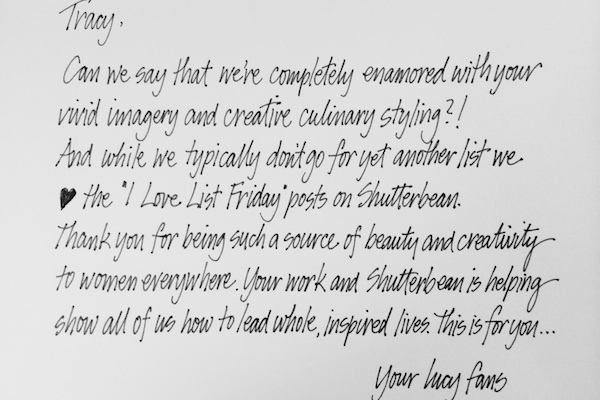 Tracy,
Can we say that we're completely enamored with your
vivid imagery and creative culinary styling?!
And while we typically don't go for yet another list we
♥ the "I Love List Friday" posts on Shutterbean.
Thank you for being such a source of beauty and creativity
to women everywhere. Your work and Shutterbean is helping
show all of us how to lead whole, inspired lives. This is for you...
Your lucy fans